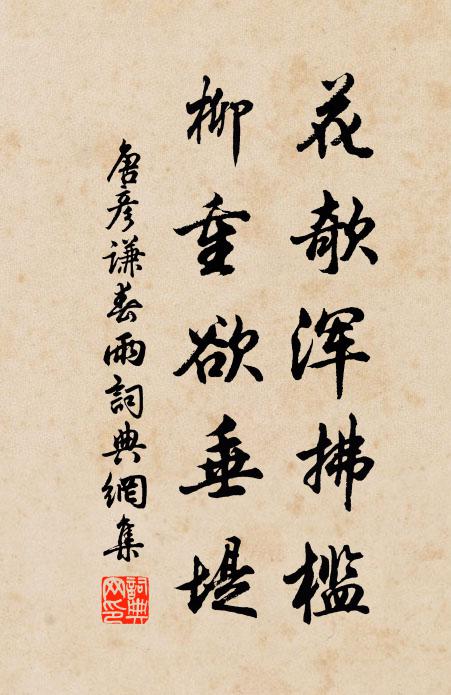 花欹浑拂槛
柳重欲垂堤
唐彦谦春雨詞典網集
詞典
网印